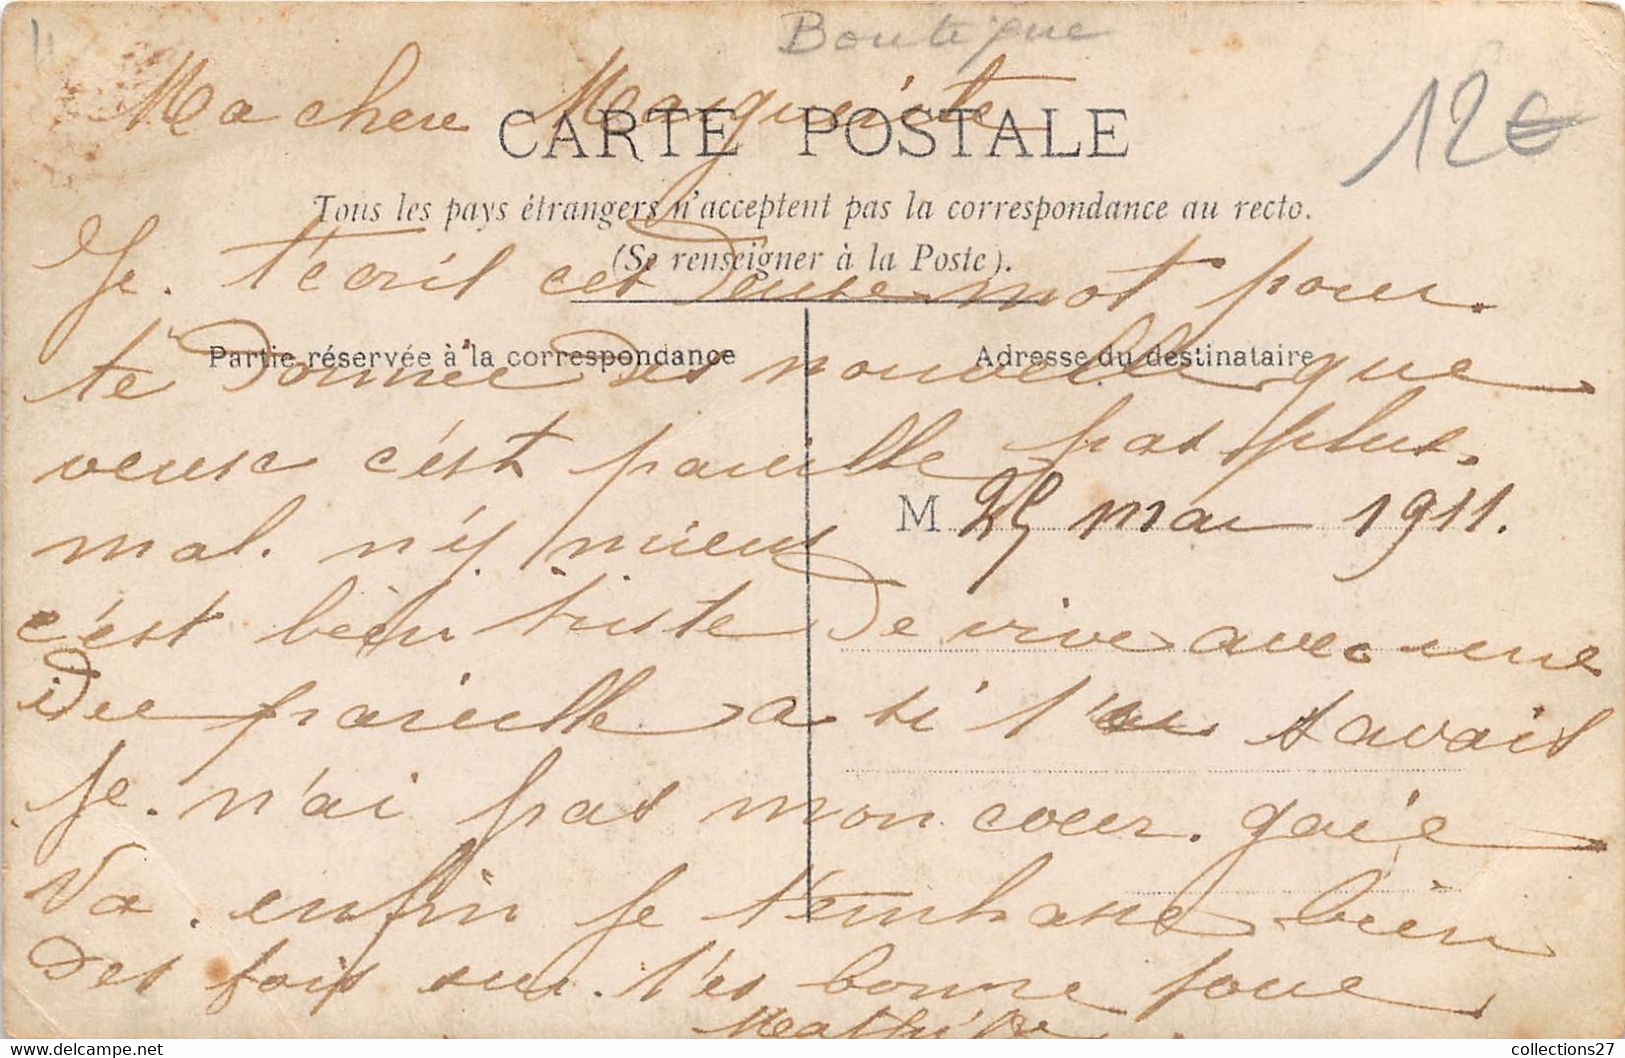 Boutique
12€
Ma chere Marguerite
CARTE POSTALE
Tous les pays étrangers n'acceptent pas la correspondance au recto.
(Se renseigner à la Poste).
Je. t'écrit cet Deuse mot pour.
Partie réservée à la correspondance
Adresse du destinataire
te Donnee Des nouvelle que
veuse c'est pareille pas plus.
M 25 mai 1911.
mal. n'y mieux
c'est bien triste De vive avec une
idee pareille a si l'on savait
Je. n'ai pas mon coeur. gaie
Va. enfin je t'embrasse bien
Des fois sur. t'es bonne joue
Mathilde
collections27